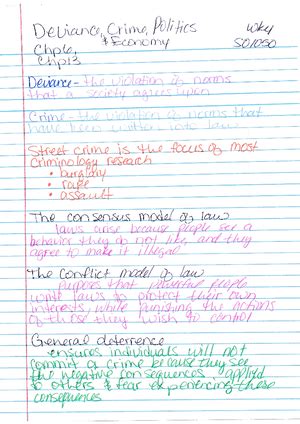 Deviance, Crime, Politics
& Economy
Wk4
SO1050
Chp6,
Chp13
Deviance - the violation of norms
that a society agrees upon
Crime - the violation of norms that
have been written into law
Street crime is the focus of most
criminology research
• burglary
• rape
• assault
The consensus model of law
laws arise because people see a
behavior they do not like, and they
agree to make it illegal
The conflict model of law
purposes that powerful people
write laws to protect their own
interests, while punishing the actions
of those they wish to control
General deterrence
ensures individuals will not
commit a crime because they see
the negative consequences applied
to others & fear experiencing these
consequences